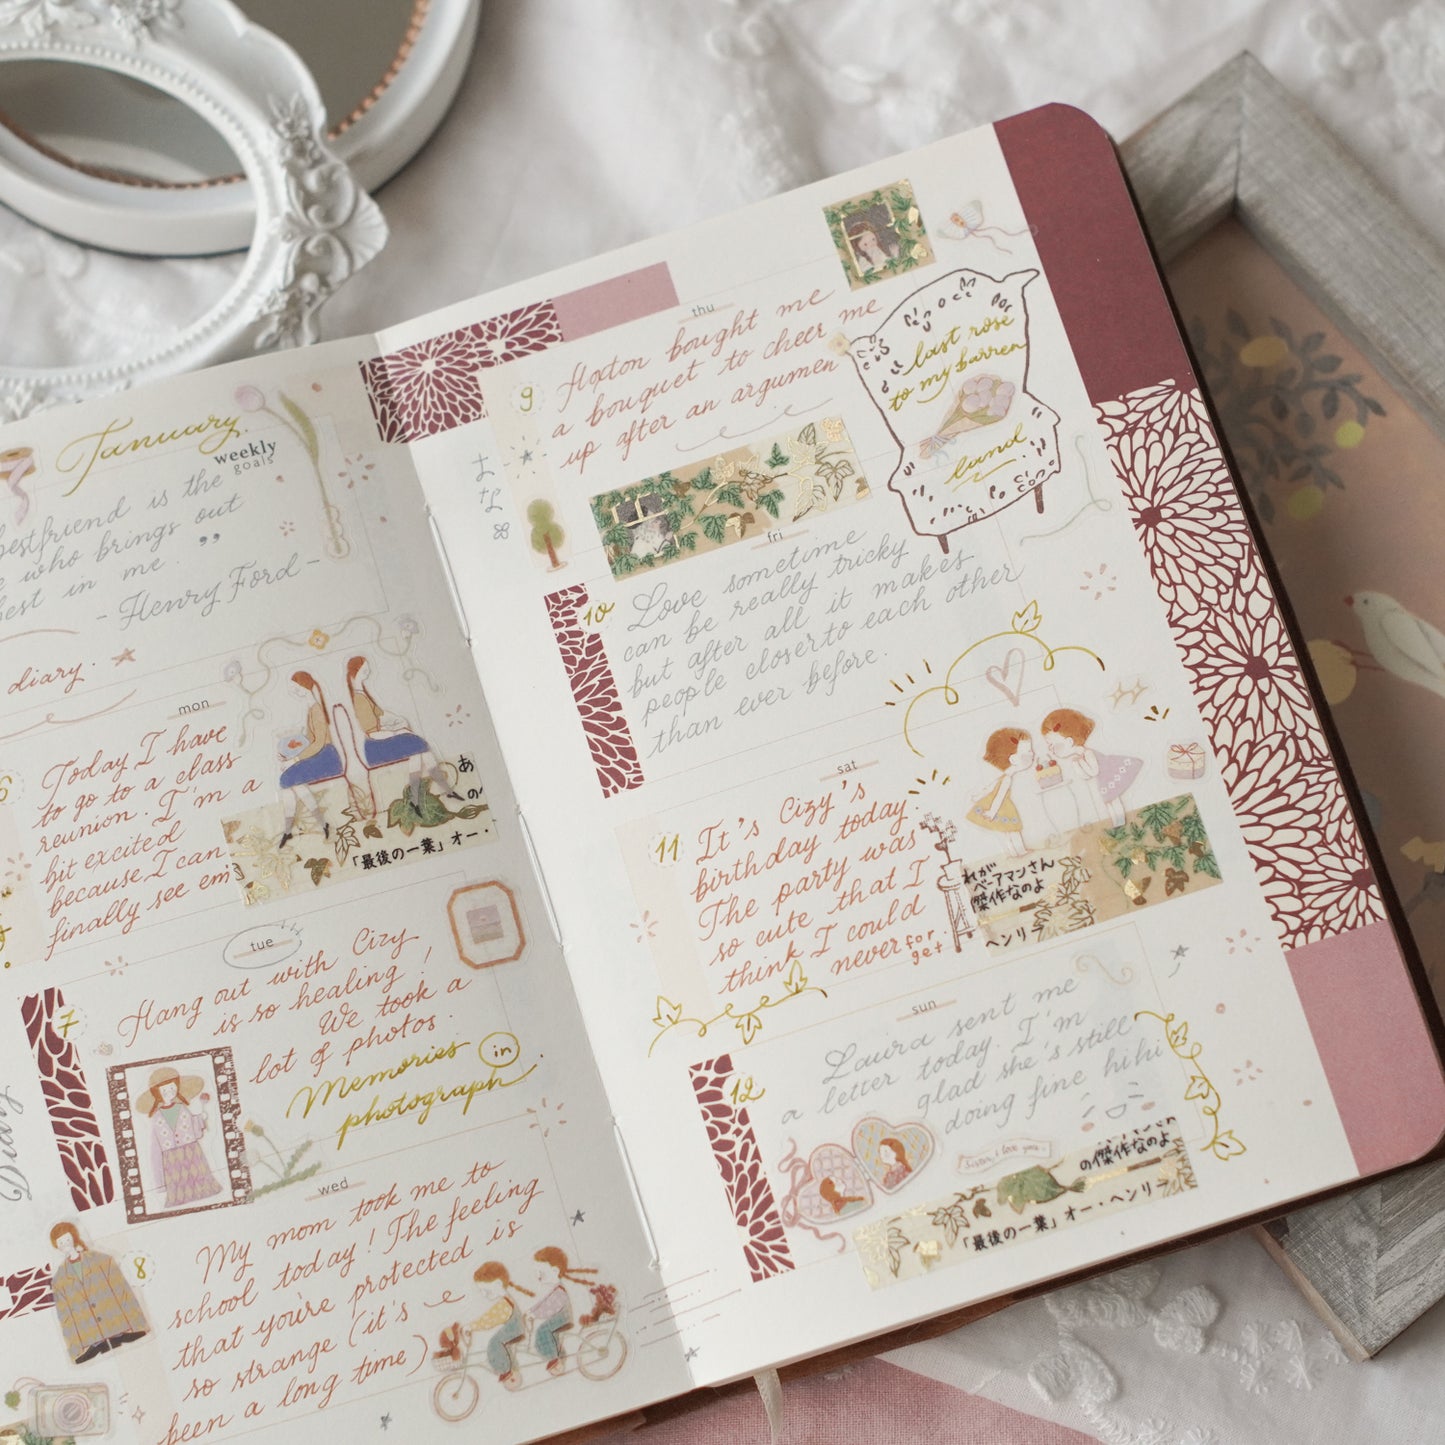 January
weekly
goals
bestfriend is the
who brings out
best in me.”
- Henry Ford -
diary.
mon
6
Today I have
to go to a class
reunion. I'm a
bit excited
because I can
finally see em
あ
「最後の一葉」オー・
tue
7
Hang out with Cizy
is so healing!
We took a
lot of photos.
Memories in
photograph.
Diary
wed
8
My mom took me to
school today! The feeling
that you're protected is
so strange (it's
been a long time)
thu
9
Hoxton bought me
a bouquet to cheer me
up after an argumen
last rose
to my barren
land.
fri
10
Love sometime
can be really tricky
but after all it makes
people closer to each other
than ever before.
sat
11
It's Cizy's
birthday today.
The party was
so cute that I
think I could
never forget
れが
ベーアマンさん
傑作なのよ
ヘンリ
sun
12
Laura sent me
a letter today. I'm
glad she's still
doing fine hihi
Sister, I love you.
の傑作なのよ
「最後の一葉」オー・ヘンリ